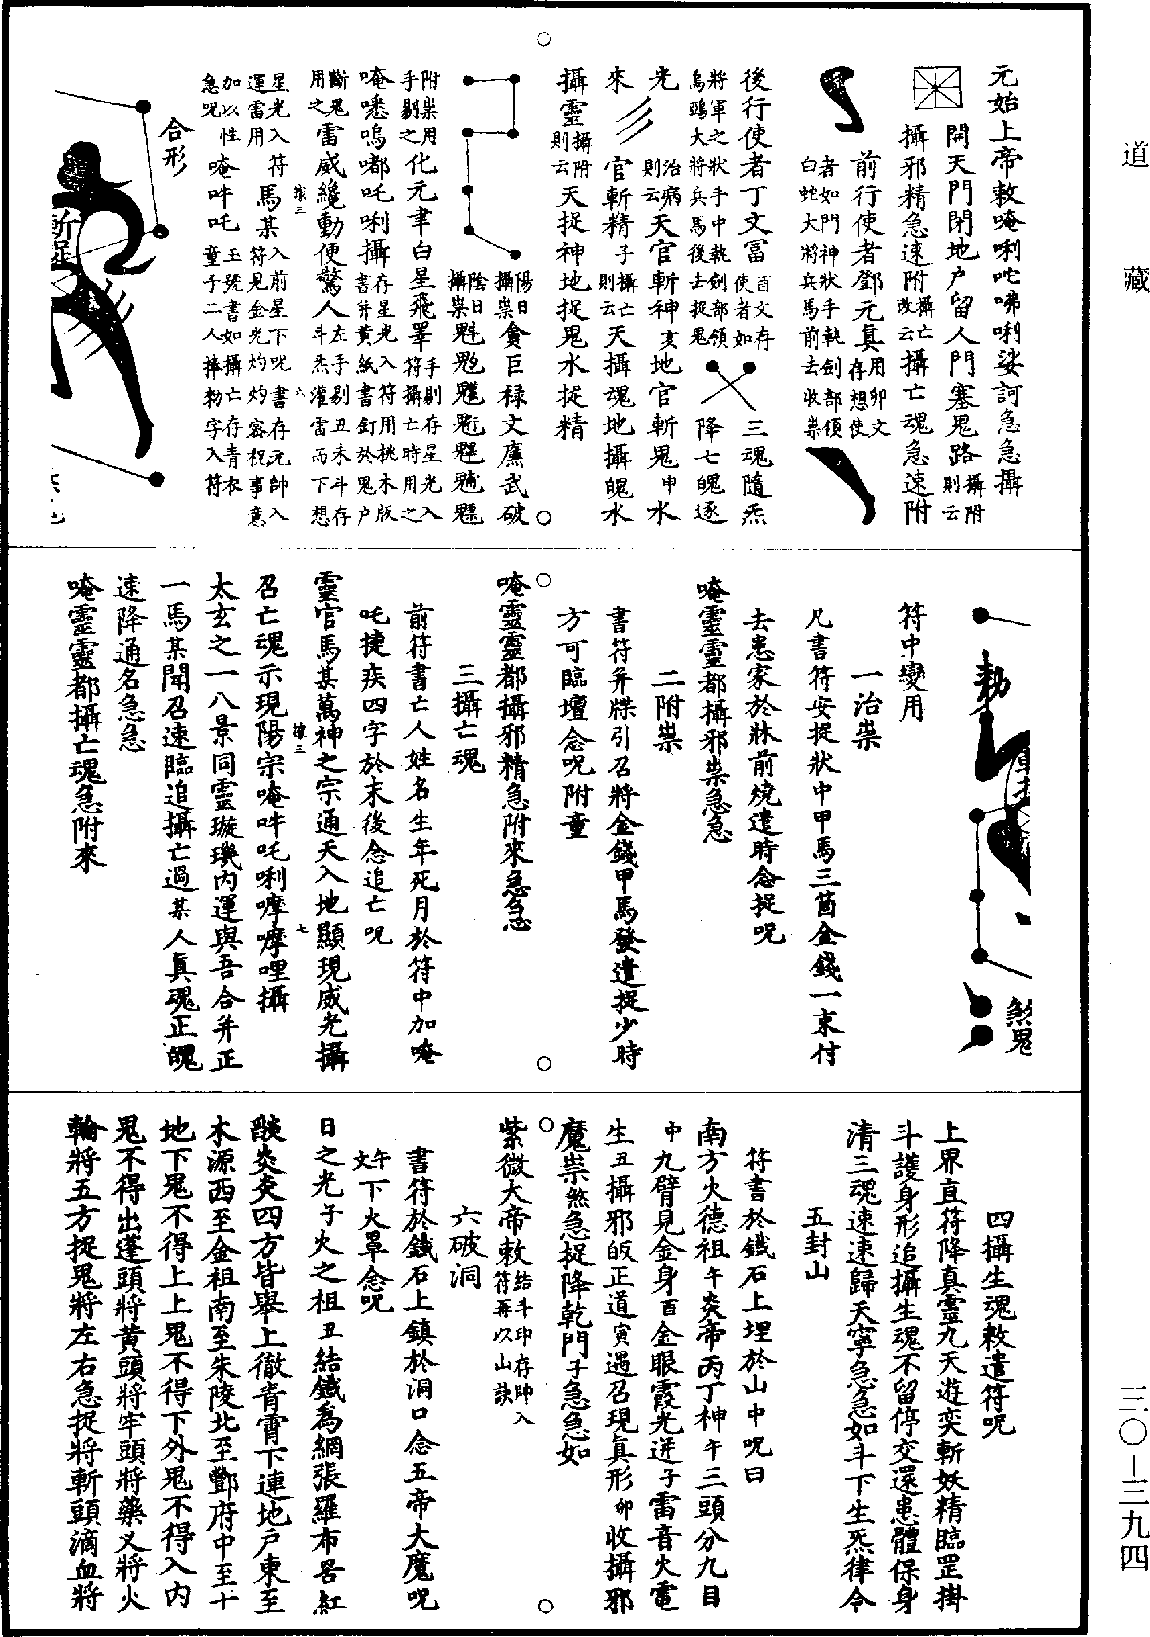 道藏
三〇—三九四
元始上帝敕唵唎咜𠺢唎娑訶急急攝
開天門閉地户留人門塞鬼路攝附則云
攝邪精急速附攝亡改云攝亡魂急速附
前行使者鄧元真用卯文存想使
者如門神狀手執劍部領白蛇大將兵馬前去收祟
後行使者丁文富酉文存使者如
將軍之狀手中執劍部領烏鵶大將兵馬後去捉鬼
三魂隨炁
降七魄逐
光治病則云天官斬神亥地官斬鬼申水
來官斬精子攝亡則云天攝魂地攝魄水
攝靈攝附則云天捉神地捉鬼水捉精
陽日攝祟貪巨祿文廉武破
陰日攝祟魁𩲃䰢魓𩳐𩵄魒
附祟用手剔之化元聿白星飛罩手剔存星光入符攝亡時用之
唵㗭嗚嘟吒唎攝存星光入符用桃木版書并黄紙書釘於鬼户
斷鬼用之雷威纔動便驚人左手剔丑未斗存斗炁灌雷而下想
星光入符運雷用馬某入前星下呪書存元帥入符見金光灼灼容祝事意
加以性急呪唵吽吒玉號書如攝亡存青衣童子二人捧敕字入符
合形
斬捉
敕
煞鬼
符中變用
一治祟
凡書符安捉狀中甲馬三箇金錢一束付
去患家於牀前燒遣時念捉呪
唵靈靈都攝邪祟急急
二附祟
書符并牒引召將金錢甲馬發遣捉少時
方可臨壇念呪附童
唵靈靈都攝邪精急附來急急
三攝亡魂
前符書亡人姓名生年死月於符中加唵
吒捷疾四字於末後念追亡呪
靈官馬某萬神之宗通天入地顯現威光攝
召亡魂示現陽宗唵吽吒唎㗬㗬哩攝
太玄之一八景同靈璇璣内運與吾合并正
一馬某聞召速臨追攝亡過某人真魂正魄
速降通名急急
唵靈靈都攝亡魂急附來
四攝生魂敕遣符呪
上界直符降真靈九天遊奕斬妖精臨罡掛
斗護身形追攝生魂不留停交還患體保身
清三魂速速歸天寧急急如斗下生炁律令
五封山
符書於鐵石上埋於山中呪曰
南方火德祖午炎帝丙丁神午三頭分九目
申九臂見金身酉金眼霞光迸子雷音火電
生丑攝邪皈正道寅遇召現真形卯收攝邪
魔祟煞急捉降乾門子急急如
紫微大帝敕結斗印存帥入符再以山訣
六破洞
書符於鐵石上鎮於洞口念五帝大魔呪
午文下火罩念呪
日之光子火之祖丑結鐵爲網張羅布罟紅
燄炎炎四方皆舉上徹青霄下連地户東至
木源西至金祖南至朱陵北至酆府中至十
地下鬼不得上上鬼不得下外鬼不得入内
鬼不得出蓬頭將黄頭將牢頭將藥叉將火
輪將五方捉鬼將左右急捉將斬頭滴血將